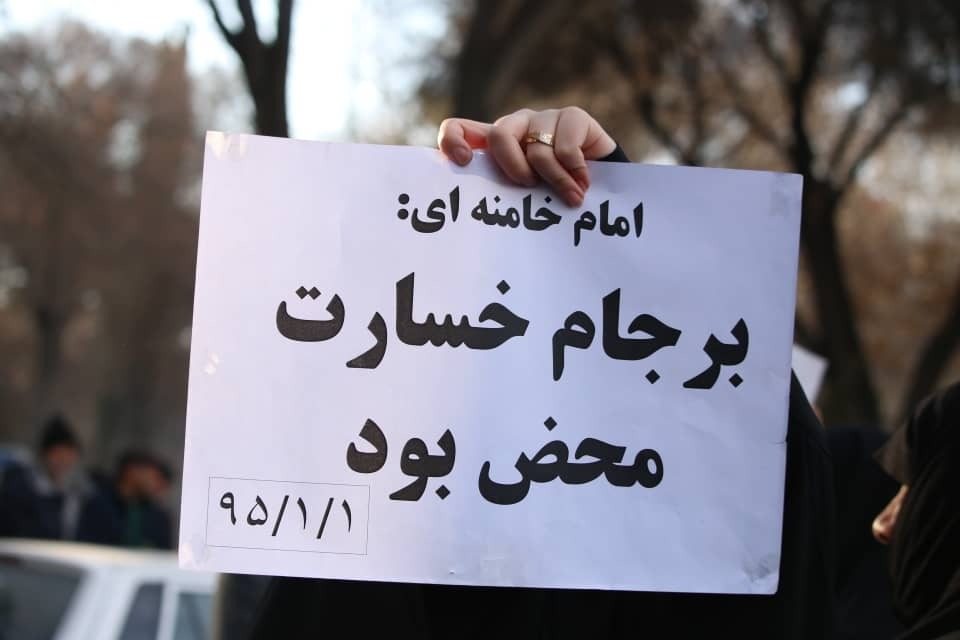 امام خامنه ای:
برجام خسارت
محض بود
۹۵/۱/۱